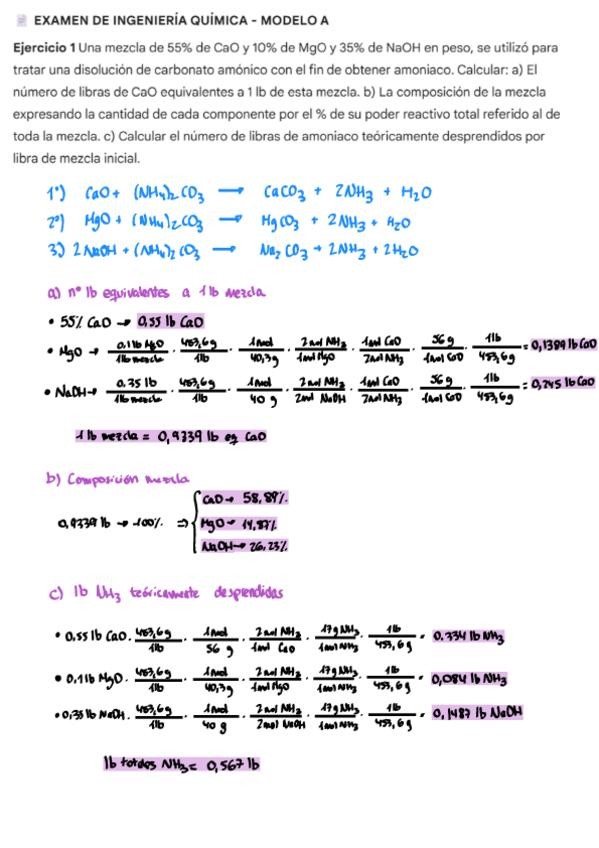 📄 EXAMEN DE INGENIERÍA QUÍMICA - MODELO A
Ejercicio 1 Una mezcla de 55% de CaO y 10% de MgO y 35% de NaOH en peso, se utilizó para
tratar una disolución de carbonato amónico con el fin de obtener amoniaco. Calcular: a) El
número de libras de CaO equivalentes a 1 lb de esta mezcla. b) La composición de la mezcla
expresando la cantidad de cada componente por el % de su poder reactivo total referido al de
toda la mezcla. c) Calcular el número de libras de amoniaco teóricamente desprendidos por
libra de mezcla inicial.
1º) CaO + (NH4)2 CO3 → CaCO3 + 2NH3 + H2O
2º) MgO + (NH4)2 CO3 → MgCO3 + 2NH3 + H2O
3) 2NaOH + (NH4)2 CO3 → Na2CO3 + 2NH3 + 2H2O
a) nº lb equivalentes a 1 lb mezcla
• 55% CaO → 0,55 lb CaO
• MgO → 0.1 lb MgO / 1 lb mezcla · 453,6g / 1lb · 1mol / 40,3g · 2mol NH3 / 1mol MgO · 1mol CaO / 2mol NH3 · 56g / 1mol CaO · 1lb / 453,6g = 0,1389 lb CaO
• NaOH → 0.35 lb / 1lb mezcla · 453,6g / 1lb · 1mol / 40 g · 2mol NH3 / 2mol NaOH · 1mol CaO / 2mol NH3 · 56g / 1mol CaO · 1lb / 453,6g = 0,245 lb CaO
1 lb mezcla = 0,9339 lb eq CaO
b) Composición mezcla
0,9339 lb → 100% ⇒ { CaO → 58,89%
MgO → 14,87%
NaOH → 26,23%
c) lb NH3 teóricamente desprendidas
• 0,55 lb CaO · 453,6g / 1lb · 1mol / 56 g · 2mol NH3 / 1mol CaO · 17g NH3 / 1mol NH3 · 1lb / 453,6g = 0.334 lb NH3
• 0.1 lb MgO · 453,6g / 1lb · 1mol / 40,3g · 2mol NH3 / 1mol MgO · 17g NH3 / 1mol NH3 · 1lb / 453,6g = 0,084 lb NH3
• 0,35 lb NaOH · 453,6g / 1lb · 1mol / 40 g · 2mol NH3 / 2mol NaOH · 17g NH3 / 1mol NH3 · 1lb / 453,6g = 0,1487 lb NaOH
lb totales NH3 = 0,567 lb